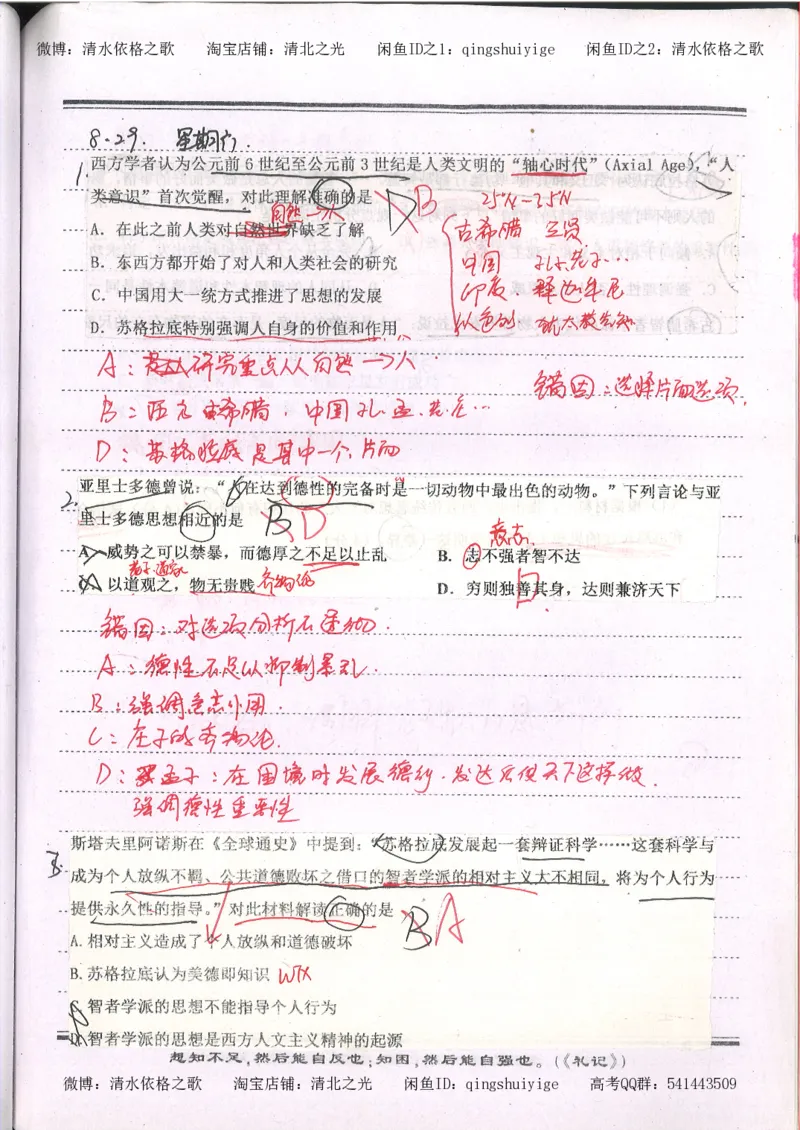 微博：清水依格之歌 淘宝店铺：清北之光 闲鱼ID之1：qingshuiyige 闲鱼ID之2：清水依格之歌
8.29. 星期六.
1. 西方学者认为公元前6世纪至公元前3世纪是人类文明的“轴心时代”（Axial Age），“人
类意识”首次觉醒，对此理解准确的是
D B
自然→人
25N-25N
A．在此之前人类对自然世界缺乏了解
古希腊 三贤
B．东西方都开始了对人和人类社会的研究
中国 孔、老子…
C．中国用大一统方式推进了思想的发展
印度 释迦牟尼
D．苏格拉底特别强调人自身的价值和作用
以色列 犹太教先知
A：研究重点从自然→人
错因：选择片面选项.
B：西方 古希腊. 中国孔.孟.老.庄…
D：苏格拉底是其中一个,片面
2. 亚里士多德曾说：“人在达到德性的完备时是一切动物中最出色的动物。”下列言论与亚
里士多德思想相近的是
B D
A．威势之可以禁暴，而德厚之不足以止乱
意志.
B．志不强者智不达
老子道家
C．以道观之，物无贵贱 齐物论
D．穷则独善其身，达则兼济天下
错因：对选项分析不透彻.
A：德性不足以抑制暴乱.
B：强调意志作用.
C：庄子的齐物论.
D：孟子：在困境时发展德行.发达后使天下这择做.
强调德性重要性
3. 斯塔夫里阿诺斯在《全球通史》中提到：“苏格拉底发展起一套辩证科学……这套科学与
成为个人放纵不羁、公共道德败坏之借口的智者学派的相对主义大不相同，将为个人行为
提供永久性的指导。”对此材料解读正确的是
B A
A.相对主义造成了个人放纵和道德破坏
B.苏格拉底认为美德即知识 WTX
C.智者学派的思想不能指导个人行为
D.智者学派的思想是西方人文主义精神的起源
想知不足，然后能自反也；知困，然后能自强也。（《礼记》）
微博：清水依格之歌 淘宝店铺：清北之光 闲鱼ID：qingshuiyige 高考QQ群：541443509